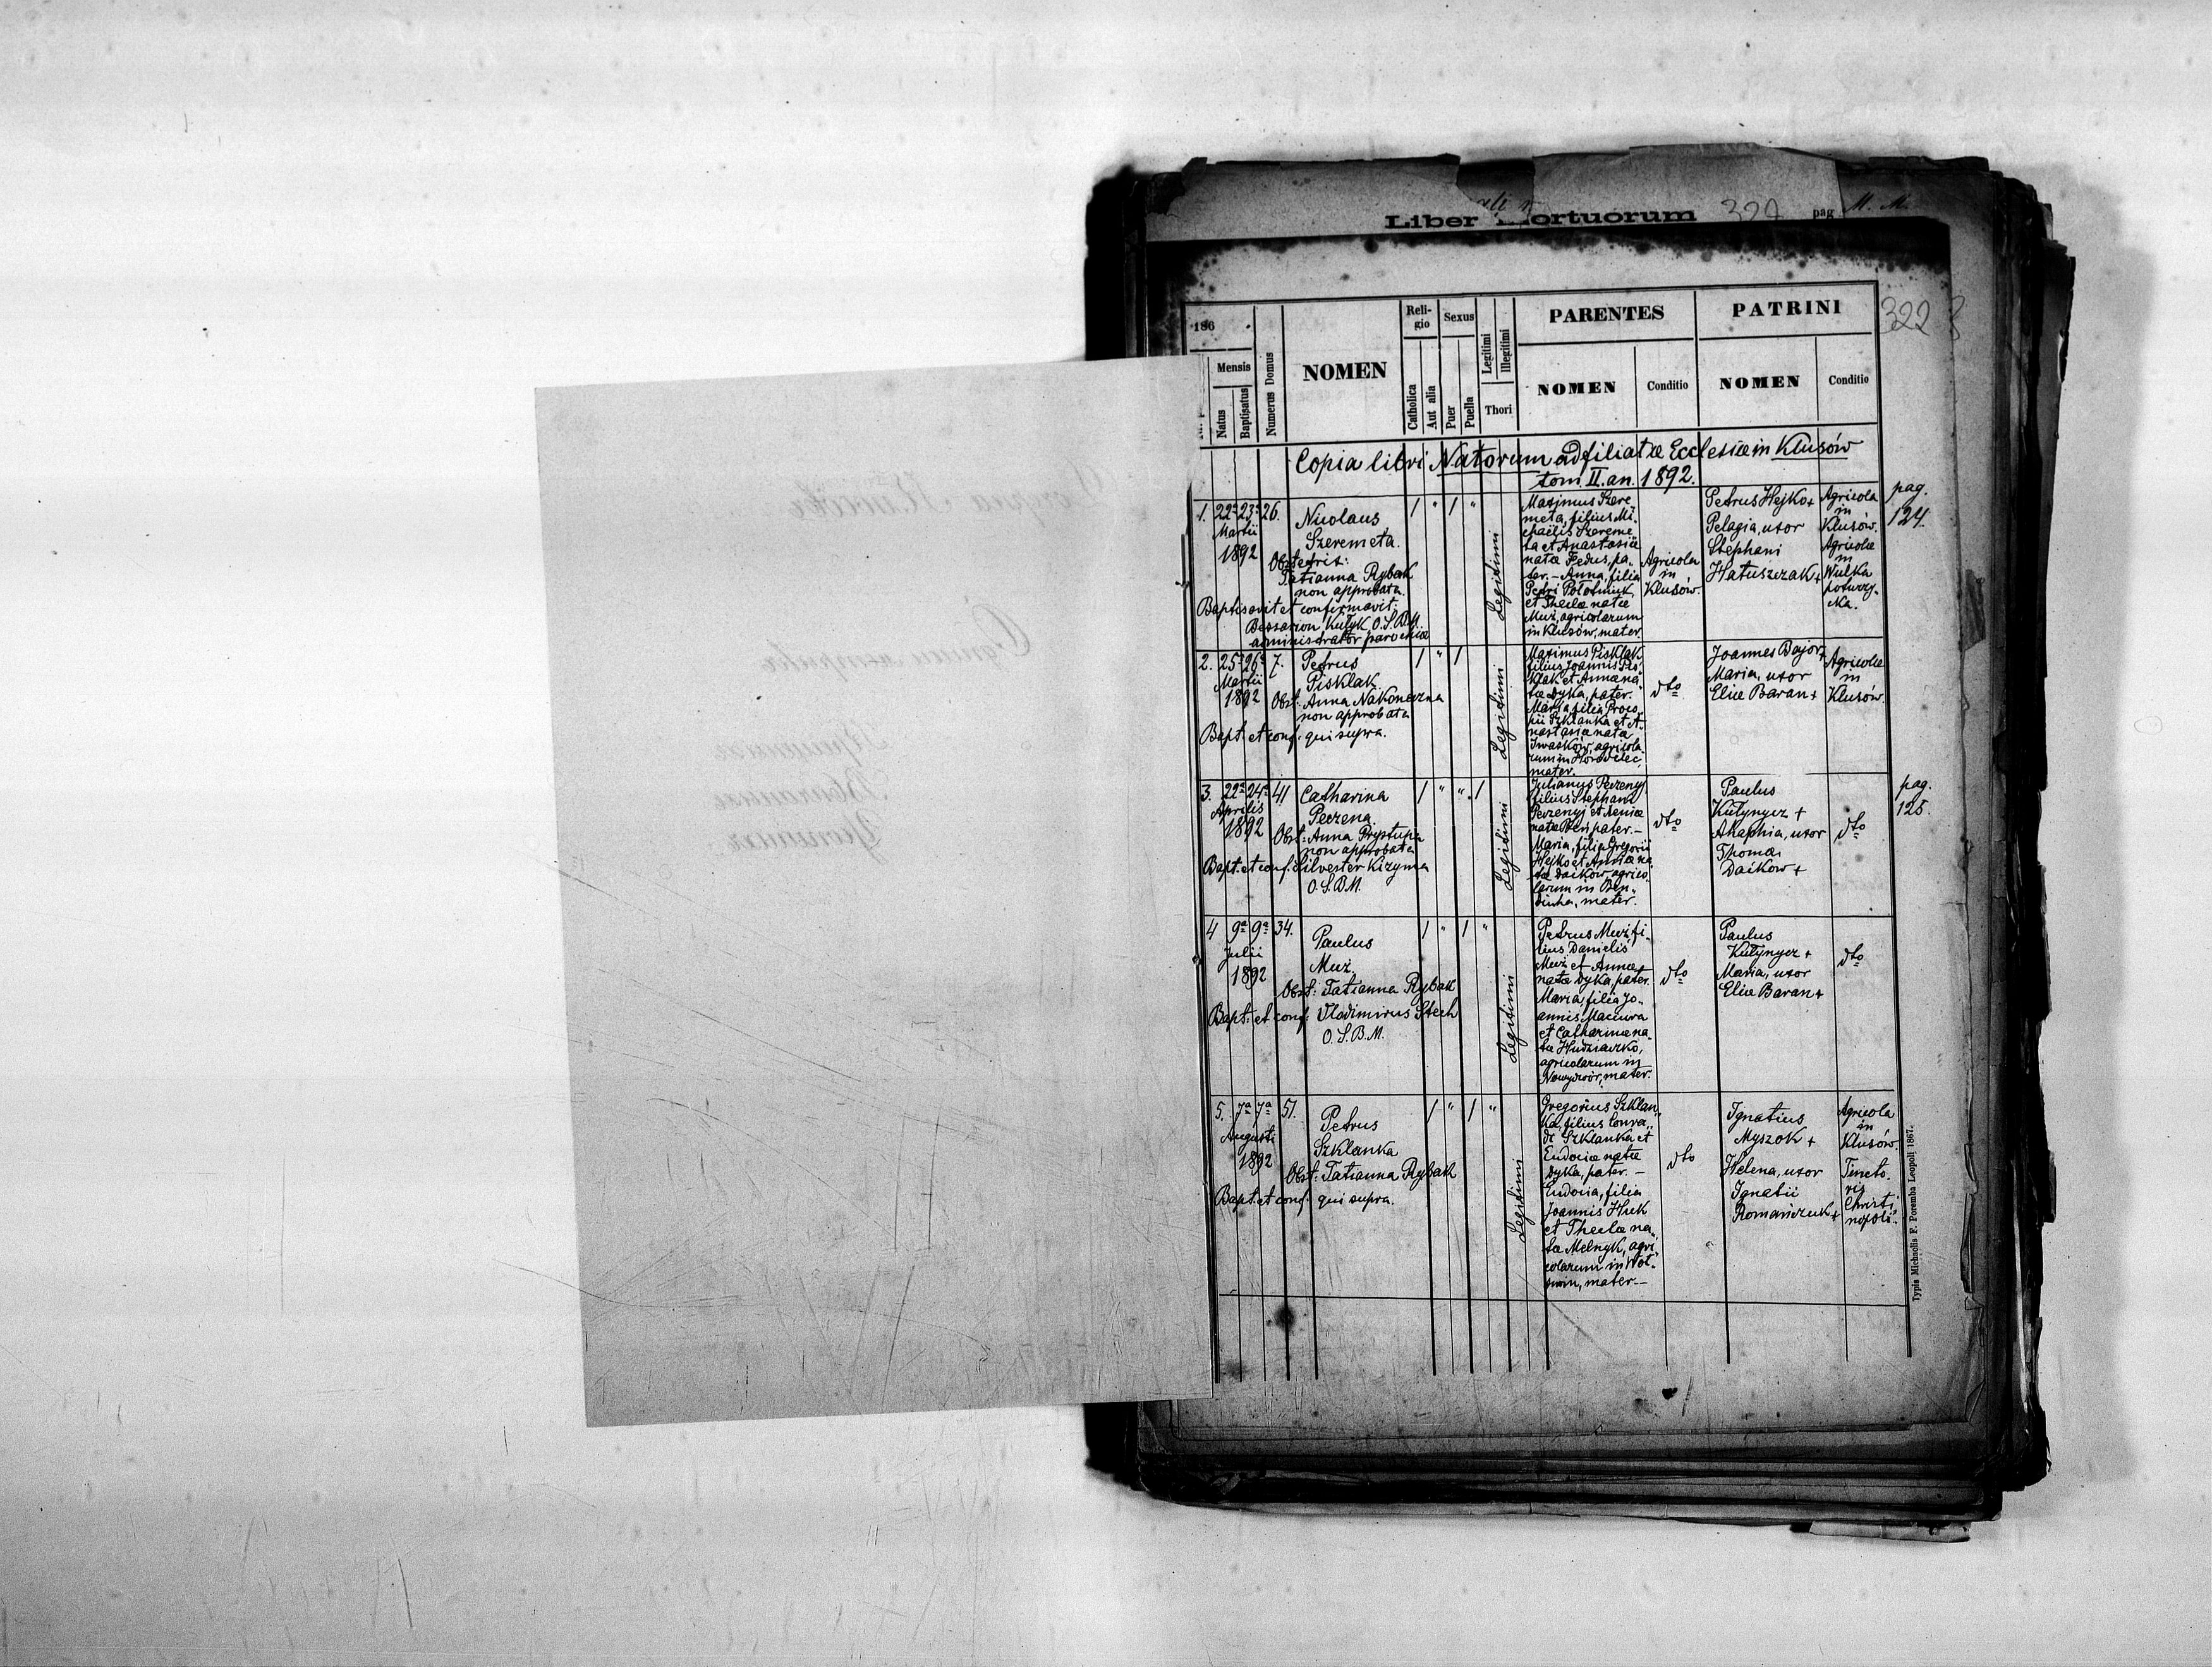 Liber ortuorum 327 pag M. M.
322
186 .
Mensis
Natus
Baptisatus
Numerus Domus
NOMEN
Reli-
gio
Catholica
Aut alia
Sexus
Puer
Puella
Legitimi
Illegitimi
Thori
PARENTES
NOMEN
Conditio
PATRINI
NOMEN
Conditio
Copia libri Natorum adfiliatæ Ecclesiæ in Klusów
tom. II. an. 1892.
pag.
124.
1. 22a 23a 26.
Martii
1892
Nicolaus
Szeremeta.
Obstetrix:
Tatianna Rybak
non approbata.
Baptisavit et confirmavit:
Bessarion Kułyk O.S.B.M.
administrator parochiæ
/ " / "
Legitimi
Maximus Szere-
meta, filius Mi-
chaëlis Szereme-
ta et Anastasiæ
natæ Fedus, pa-
ter. – Anna, filia
Petri Połotniuk
et Theclæ natæ
Muż, agricolarum
in Klusów, mater.
Agricola
in
Klusów.
Petrus Hejko +
Pelagia, uxor
Stephani
Hatuszczak +
Agricola
in
Klusów.
Agricolæ
in
Wulka
poturzy-
cka.
2. 25a 26a 7.
Martii
1892
Petrus
Pisklak
Obst: Anna Nakoneczna
non approbata
Bapt. et conf: qui supra.
/ " /
Legitimi
Maximus Pisklak
filius Joannis Pis-
klak et Annæ na-
tæ Dyka, pater.
Maria filia Proco-
pii Szklanka et A-
nastasiæ nata
Iwasków, agricola-
rum in
mater.
dto
Joannes Bajor +
Maria, uxor
Eliæ Baran +
Agricolæ
in
Klusów.
pag.
125.
3. 22a 24a 41
Aprilis
1892
Catharina
Peczena
Obst: Anna Prystupa
non approbata
Bapt. et conf: Silvester Kizyma
O.S.B.M.
/ " " /
Legitimi
Julianus Peczenyj
filius Stephani
Peczenyj et Xeniæ
natæ pater. –
Maria, filia Gregorii
Hejko et Annæ na-
tæ Daików agrico-
larum in Ben-
diuha, mater.
dto
Paulus
Kułynycz +
Ahaphia, uxor
Thomæ
Daików +
dto
4 9a 9a 34.
Julii
1892
Paulus
Muż.
Obst: Tatianna Rybak
Bapt. et conf: Vladimirus Stech
O.S.B.M.
/ " / "
Legitimi
Petrus Muż, fi-
lius Danielis
Muż et Annæ
natæ Dyka, pater.
Maria, filia Jo-
annis Maciura
et Catharinæ na-
tæ Hudziaczko,
agricolarum in
Nowydwór, mater.
dto
Paulus
Kułynycz +
Maria, uxor
Eliæ Baran +
dto
5. 7a 7a 51.
Augusti
1892
Petrus
Szklanka
Obst: Tatianna Rybak
Bapt. et conf: qui supra.
/ " / "
Legitimi
Gregorius Szklan-
ka, filius Conra-
di Szklanka et
Eudociæ natæ
Dyka, pater. –
Eudocia, filia
Joannis Huk
et Theclæ na-
tæ Melnyk, agri-
colarum in Woł-
swin, mater. –
dto
Ignatius
Myszok +
Helena, uxor
Ignatii
Romańczuk +
Agricola
in
Klusów.
Tincto-
ris
Christi-
nopoli.
Typis Michaelis F. Poremba Leopoli 1867.